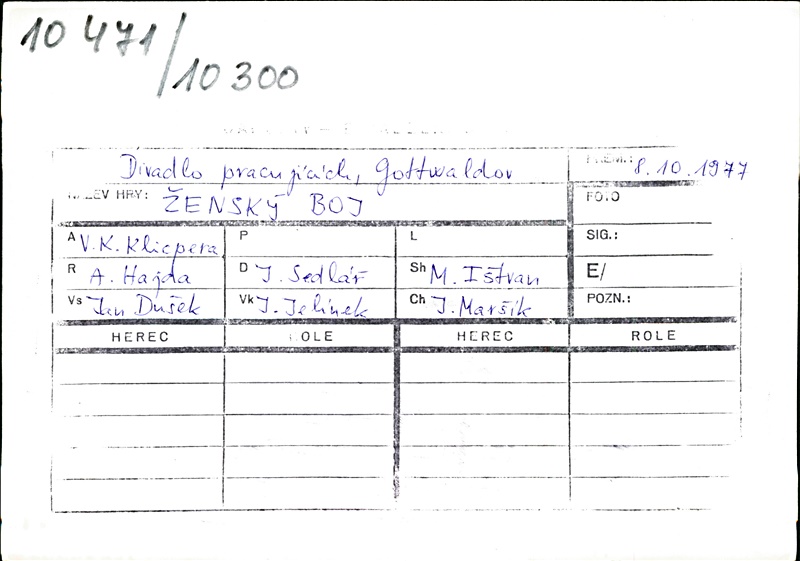 10 471/10 300
Divadlo pracujících, Gottwaldov
8.10.1977
HRY: ŽENSKÝ BOJ
A V. K. Klicpera P L SIG.:
R A. Hajda D J. Sedlář Sh M. Ištvan E/
Vs Jan Dušek Vk J. Jelínek Ch J. Maršík POZN.:
HEREC HEREC ROLE